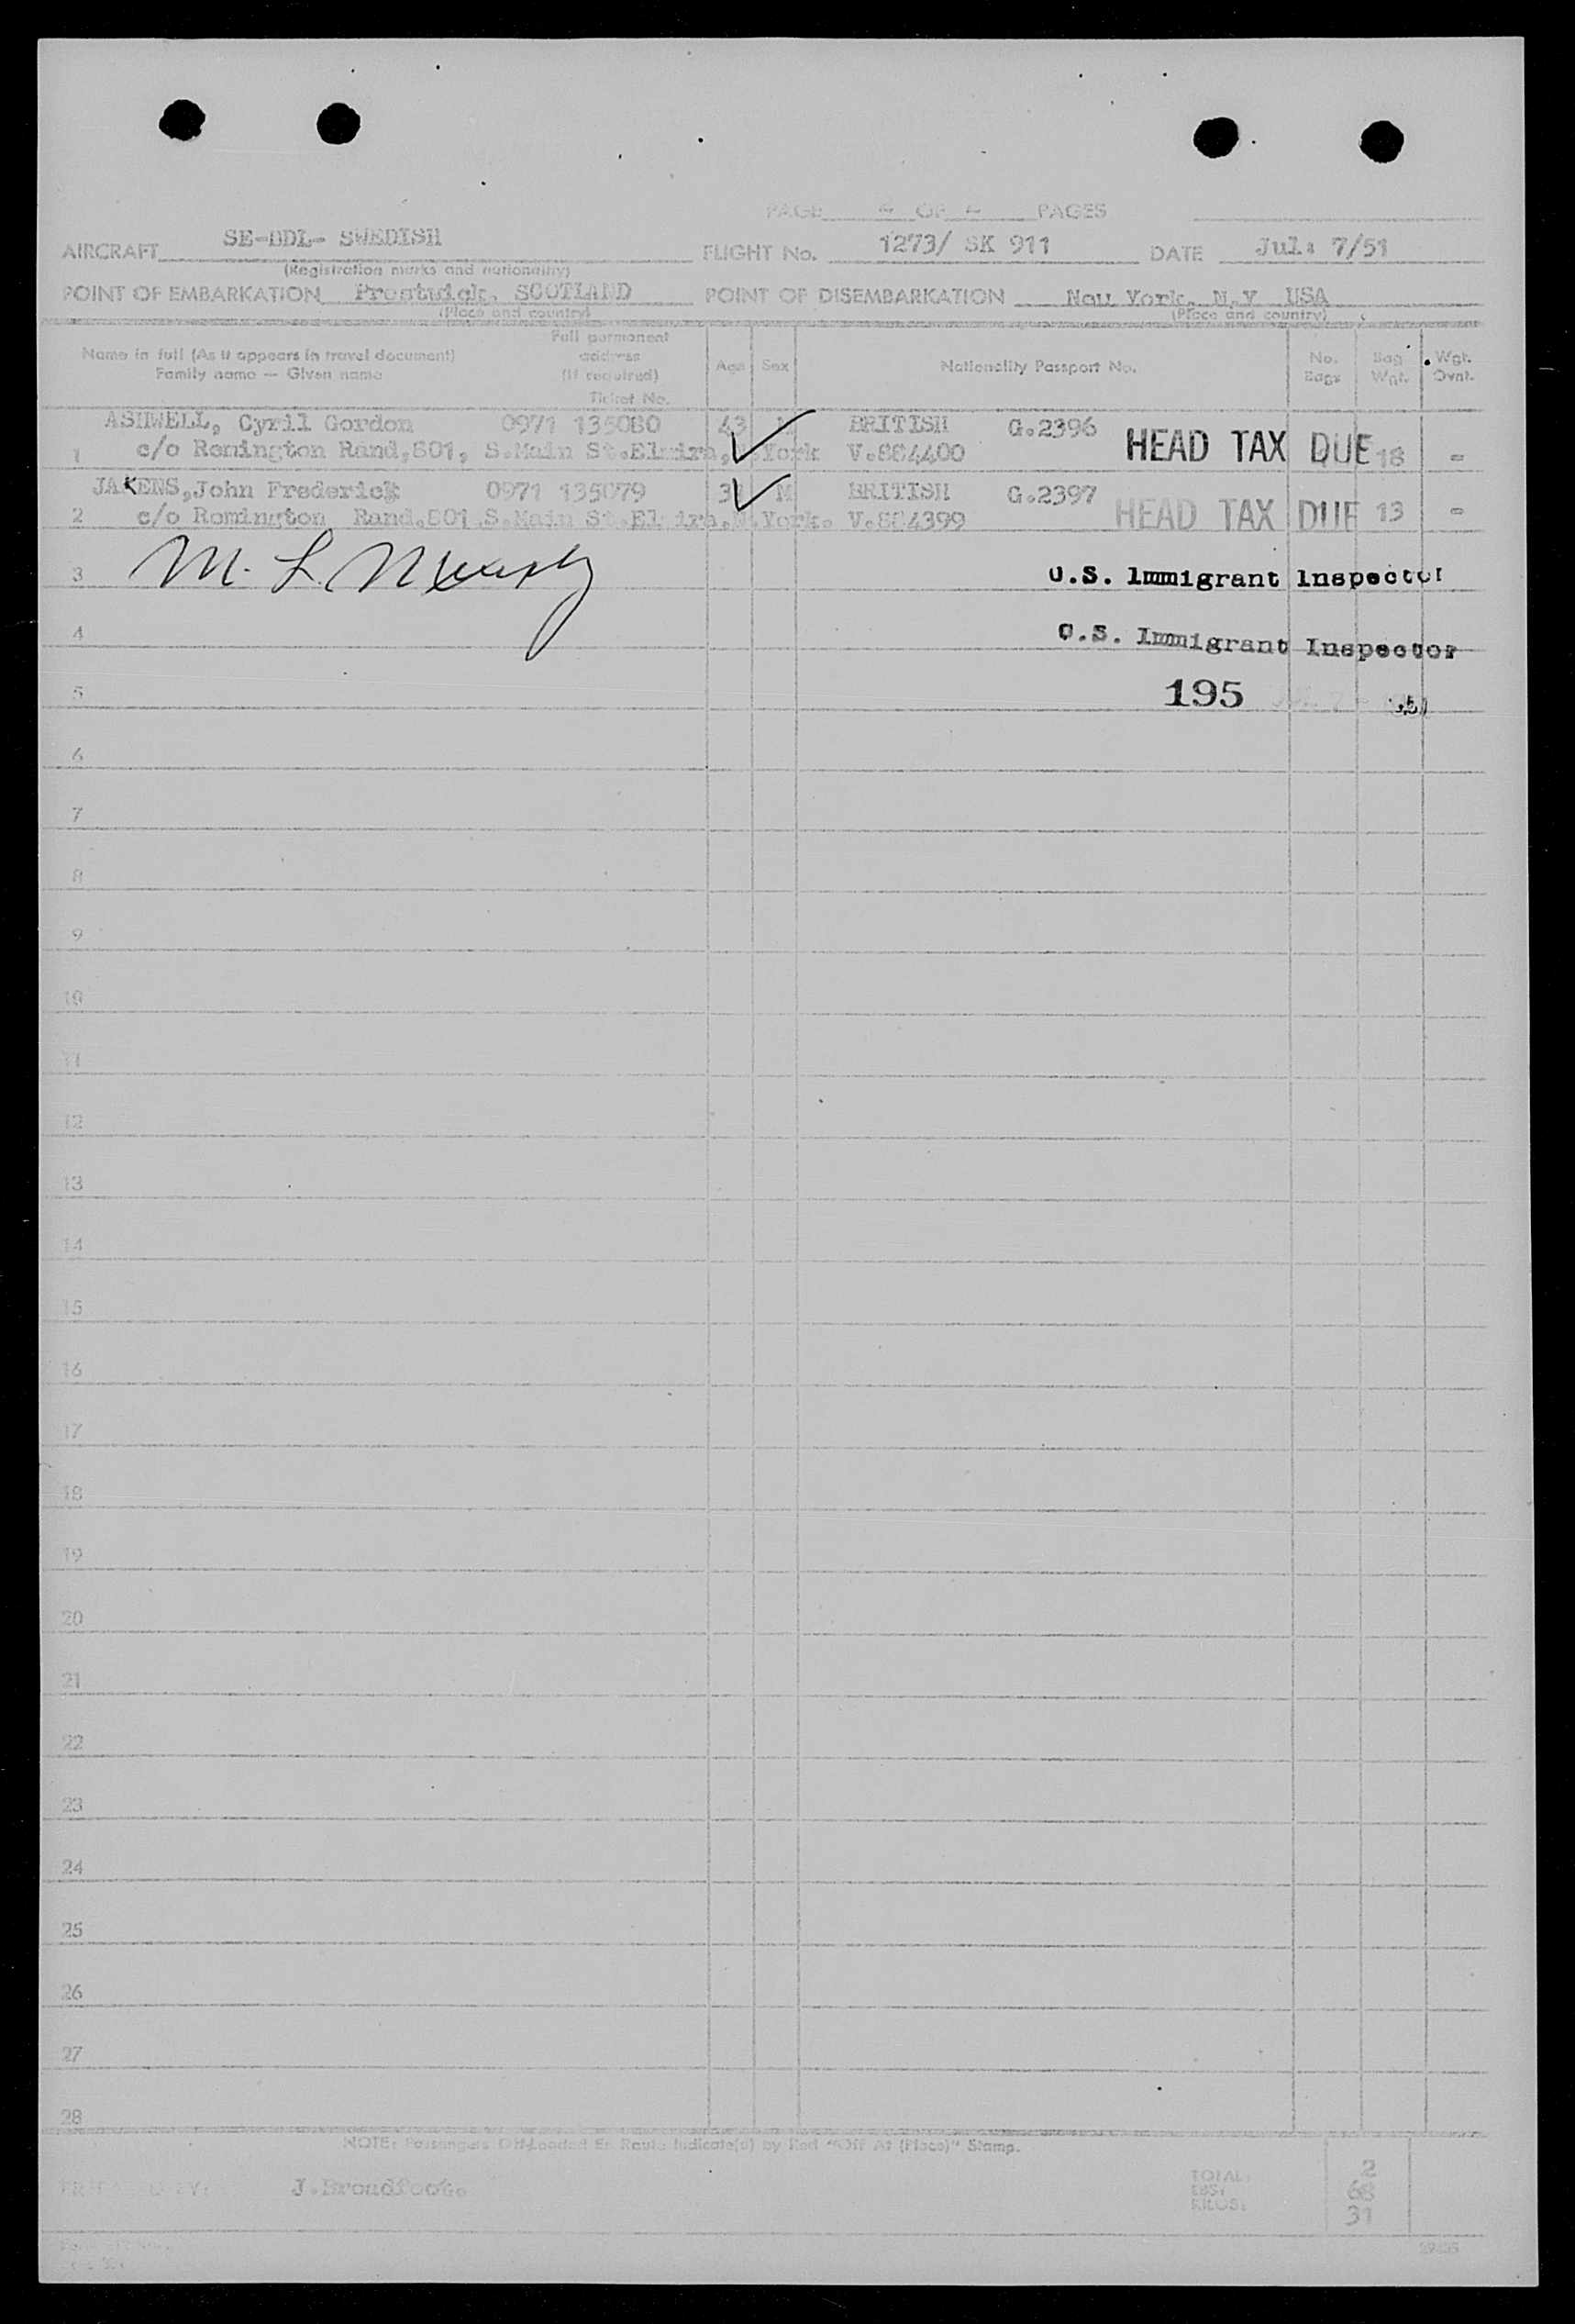 PAGE OF PAGES
AIRCRAFT SE-DDL- SWEDISH FLIGHT No. 1273/ SK 911 DATE Jul: 7/51
(Registration marks and nationality)
POINT OF EMBARKATION Prestwick, SCOTLAND POINT OF DISEMBARKATION New York, N.Y USA
(Place and country) (Place and country)
Name in full (As it appears in travel document) Family name — Given name Full permanent address (if required) Ticket No. Age Sex Nationality Passport No. No. Bags Bag Wgt. Wgt. Ovnt.
ASHWELL, Cyril Gordon 0971 135080 43 M BRITISH G.2396 HEAD TAX DUE 18 -
1 c/o Remington Rand,801, S.Main St.Elmira,N.York V.884400
JAKENS,John Frederick 0971 135079 M BRITISH G.2397 HEAD TAX DUE 13 -
2 c/o Remington Rand,801,S.Main St.Elmira,N.York. V.884399
3 M. L. Murphy U.S. Immigrant Inspector
4 U.S. Immigrant Inspector
5 195
6
7
8
9
10
11
12
13
14
15
16
17
18
19
20
21
22
23
24
25
26
27
28
NOTE: Passengers Off-Loaded En Route Indicate(d) by Red "Off At (Place)" Stamp.
PREPARED BY: J.Broadfoot. TOTAL: 2
LBS: 68
KILOS: 31